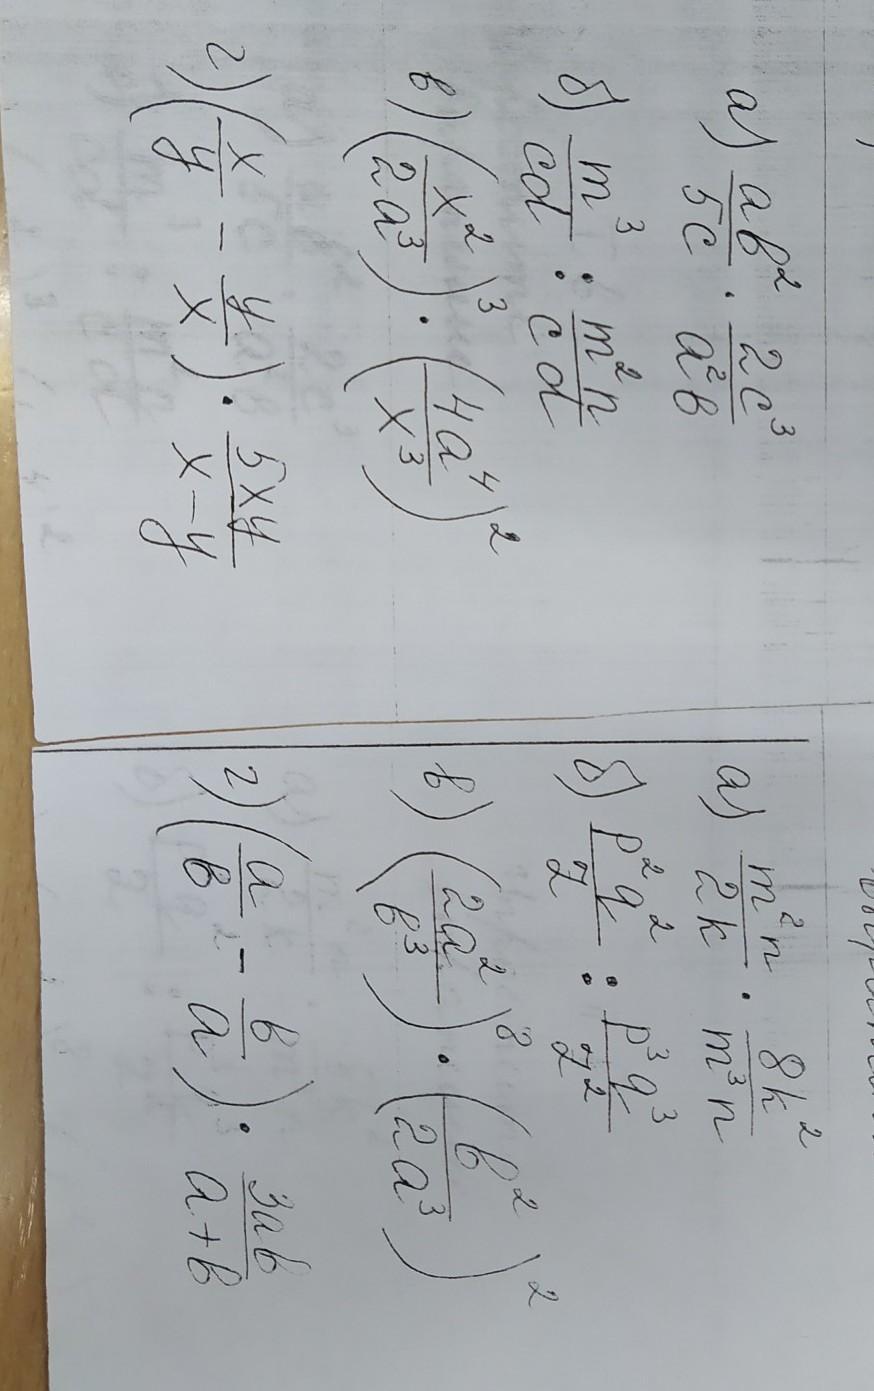 а) ab²/5c · 2c³/a²b
б) m³/cd : m²n/cd
в) (x²/2a³)³ · (4a⁴/x³)²
г) (x/y - y/x) · 5xy/x-y
а) m²n/2k · 8k²/m³n
б) p²q²/z : p³q³/z²
в) (2a²/b³)⁸ · (b²/2a³)²
г) (a/b - b/a) · 3ab/a+b